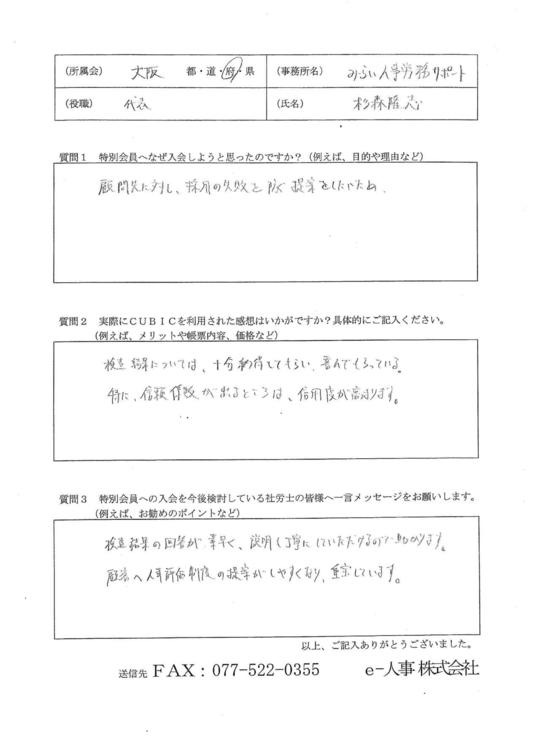 （所属会） 大阪 都・道・府・県 （事務所名） みらい人事労務サポート
（役職） 代表 （氏名） 杉森隆志
質問１ 特別会員へなぜ入会しようと思ったのですか？（例えば、目的や理由など）
顧問先に対し、採用の失敗を防ぐ提案をしたいため、
質問２ 実際にＣＵＢＩＣを利用された感想はいかがですか？具体的にご記入ください。
（例えば、メリットや帳票内容、価格など）
検査結果については、十分納得してもらい、喜んでもらっている。
特に、信頼係数が出るところは、信用度が高まります。
質問３ 特別会員への入会を今後検討している社労士の皆様へ一言メッセージをお願いします。
（例えば、お勧めのポイントなど）
検査結果の回答が素早く、説明も丁寧にしていただけるので助かります。
顧客へ人事評価制度の提案がしやすくなり、重宝しています。
以上、ご記入ありがとうございました。
送信先 ＦＡＸ：077-522-0355 e-人事 株式会社